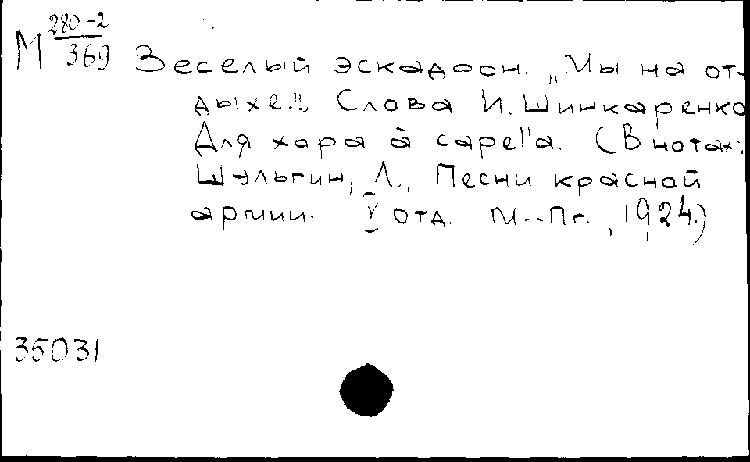 М 280-2
369
Веселый эскадрон. „Мы на от-
дыхе." Слова И. Шинкаренко
Для хора à capella. (В нотах:
Шульгин, Л., Песни красной
армии. V отд. М.-Пг., 1924.)
35031